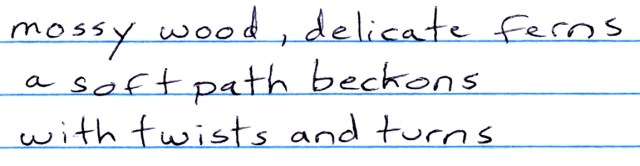 mossy wood, delicate ferns
a soft path beckons
with twists and turns